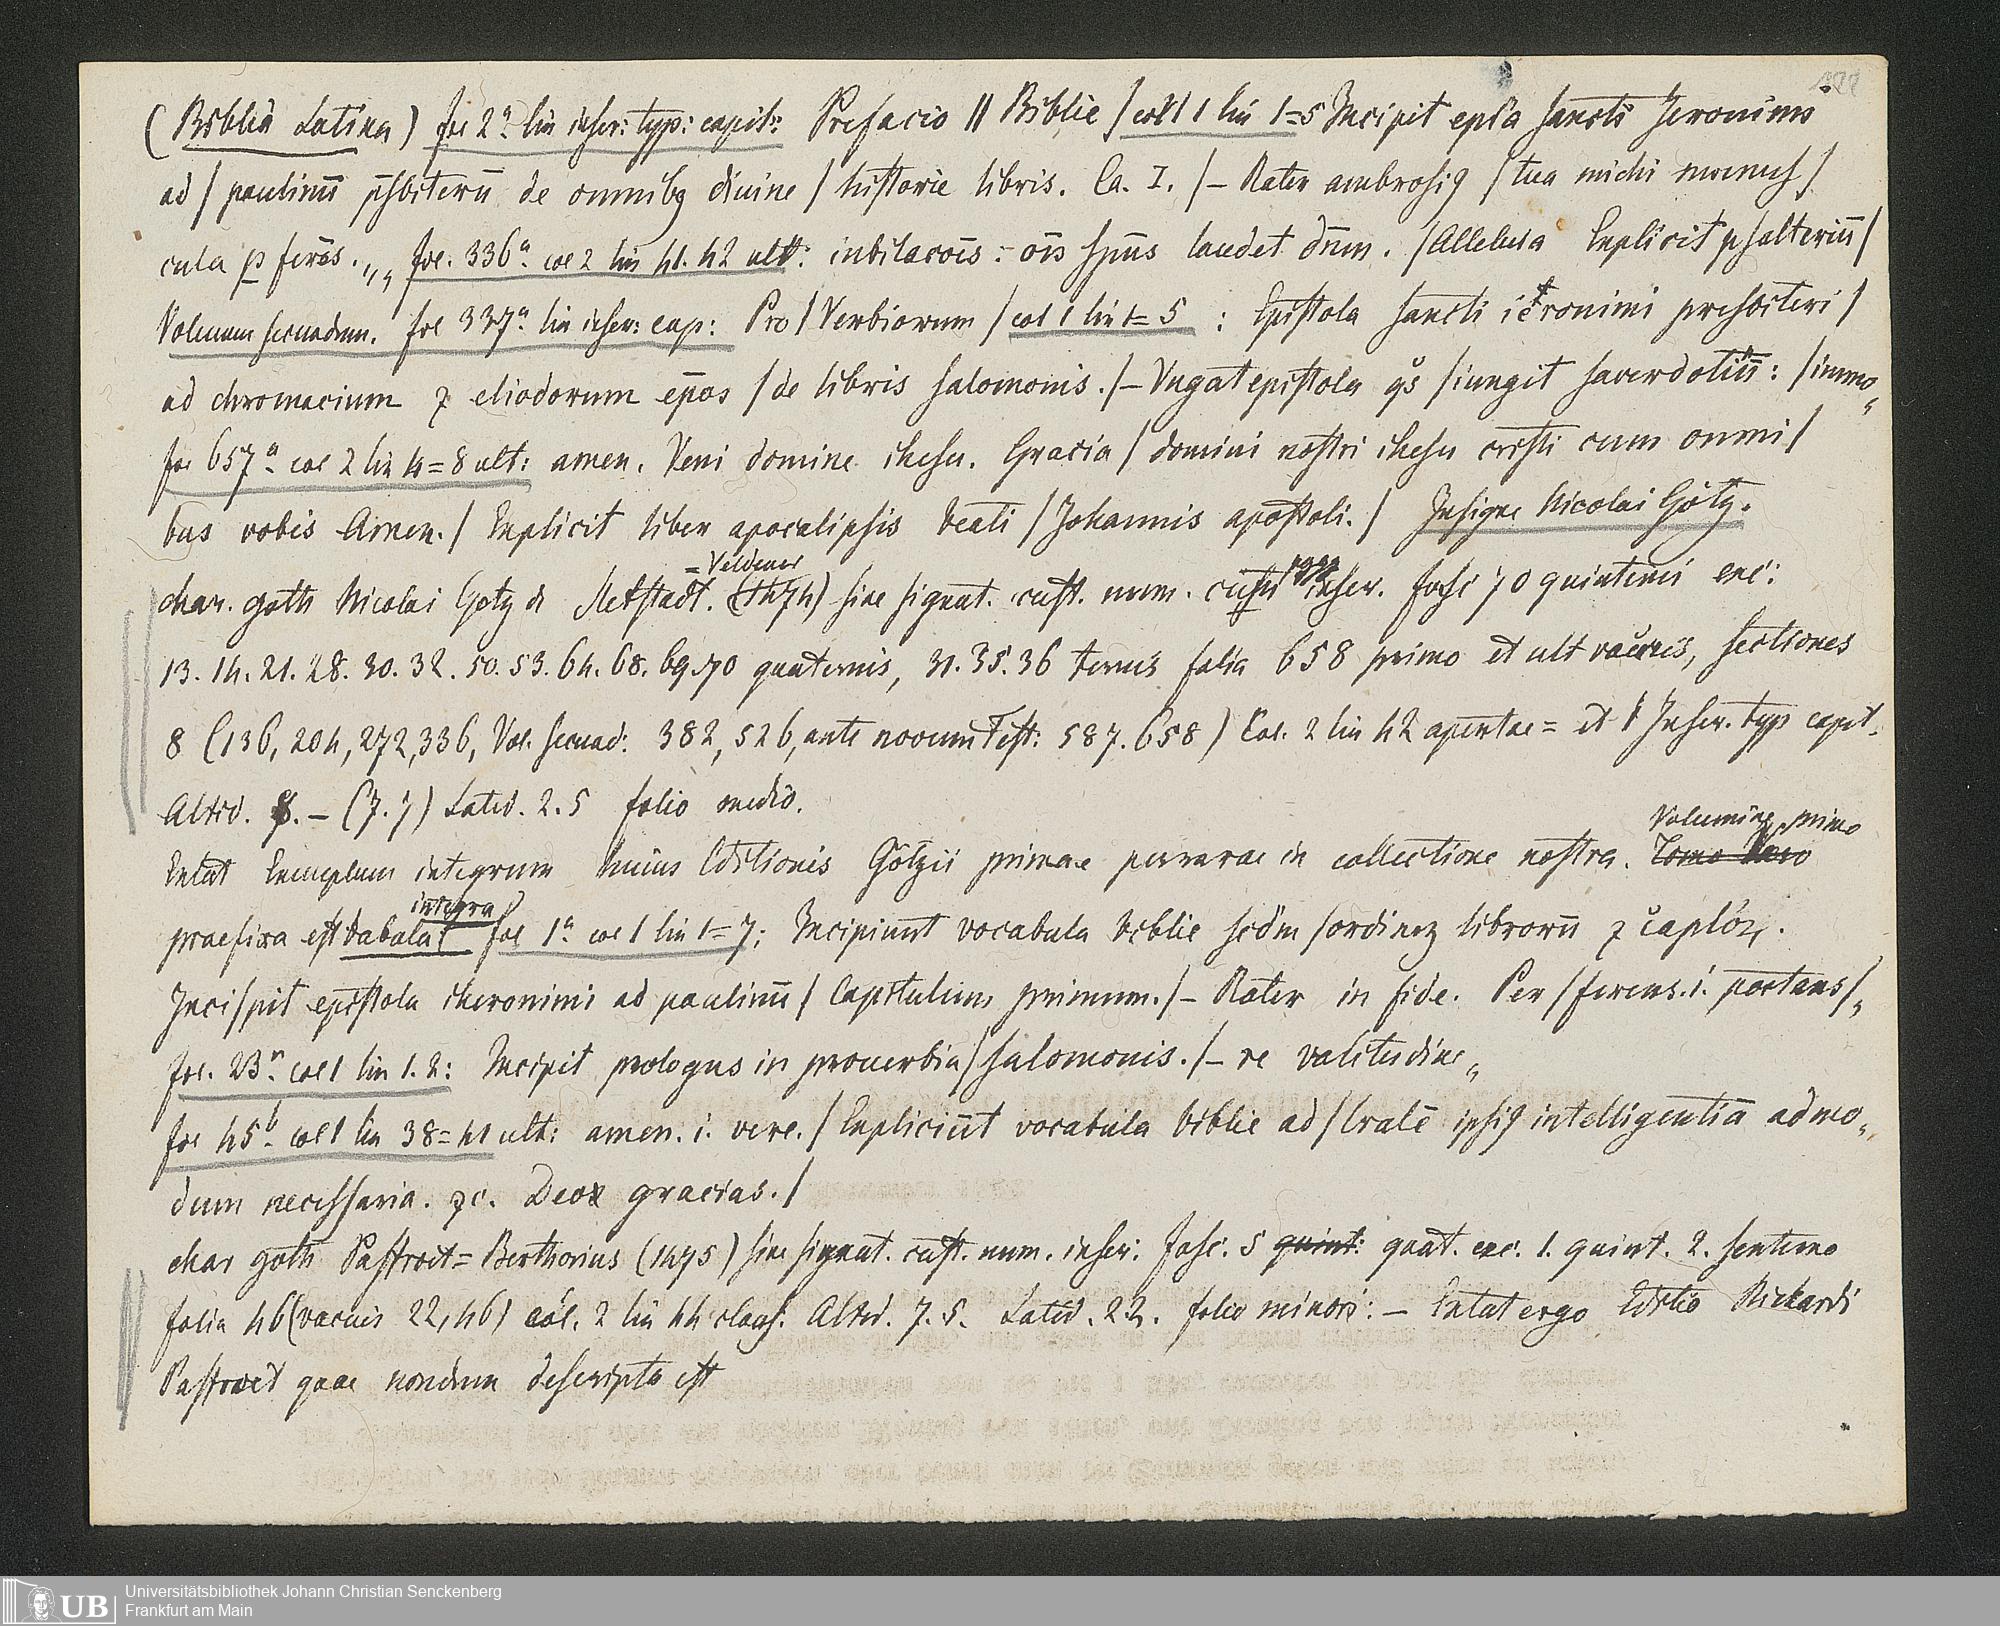 (Biblia Latina) fol 2ª lin inscr: typ: capit: Prefacio || Biblie / col 1 lin 1=5 Incipit epl'a sancti Jeronimi
ad / paulinū p̄sbiterū de omnibꝯ diuine / historie libris. Ca. I. /– Rater ambrosiꝯ / tua michi munus /
cula ꝑ ferēs. „„ fol. 336ª col 2 lin 41. 42 ult: iubilacōis: oīs spūs laudet dn̄m. / Alleluia Explicit psalteriū /
Volumen secundum. fol 337ª lin inscr: cap: Pro / Verbiorum / col 1 lin 1=5 : Epistola sancti ieronimi presbiteri /
ad chromacium ⁊ eliodorum ep̄os / de libris salomonis. /– Vngat epistola q̊s / iungit sacerdotiū: / immo„
fol 657ª col 2 lin 4=8 ult: amen. Veni domine ihesu. Gracia / domini nostri ihesu cristi cum omni /
bus vobis Amen. / Explicit liber apocalipsis beati / Johannis apostoli. / Insigne Nicolai Götz.
= Veldener
char. goth Nicolai Gotz d Sletstadt. (1474) sine signat. cust. num. inscr. fasc 70 quinternis exc:
13. 14. 21. 28. 30. 32. 50. 53. 64. 68. 69. 70 quaternis, 31. 35. 36 ternis folia 658 primo et ult vacuis, sectiones
8 (136, 204, 272, 336, Vol. secund: 382, 526, ante novum Test: 587. 658) Col. 2 lin 42 apertae = et 1 Inscr. typ capit.
Altid. 8. – (7. 7) Latid. 2. 5 folio medio.
Volumine primo
Extat Exemplum integrum huius Editionis Götzii primae perrarae in collectione nostra. Tomo Vero
integra
praefixa est tabula fol 1ª col 1 lin 1=7: Incipiunt vocabula biblie scd̄m / ordinez librorū ⁊ caplóꝝ.
Inci / pit epistola iheronimi ad paulinū / Capitulum primum. /– Rater in fide. Per / ferens .i. portans /„
fol. 23ª. col 1 lin 1. 2: Incipit prologus in prouerbia / salomonis. /– re valitudine„
fol 45ᵇ. col 1 lin 38=41 ult: amen. i. vere. / Expliciūt vocabula biblie ad / lralē ipsiꝯ intelligentiā admo„
dum necessaria. ⁊c. Deo gracias. /
char goth Paffroet = Berthorius (1475) sine signat. cust. num. inscr: fasc. 5 quint: quat. exc. 1. quint. 2. senterno
folia 46 (vacuis 22, 46) col. 2 lin 44 claus. Altid. 7. 5. Latid. 2.2. folio minori: – Extat ergo Editio Richardi
Paffroet quae nondum descripta est
Universitätsbibliothek Johann Christian Senckenberg
Frankfurt am Main
UB